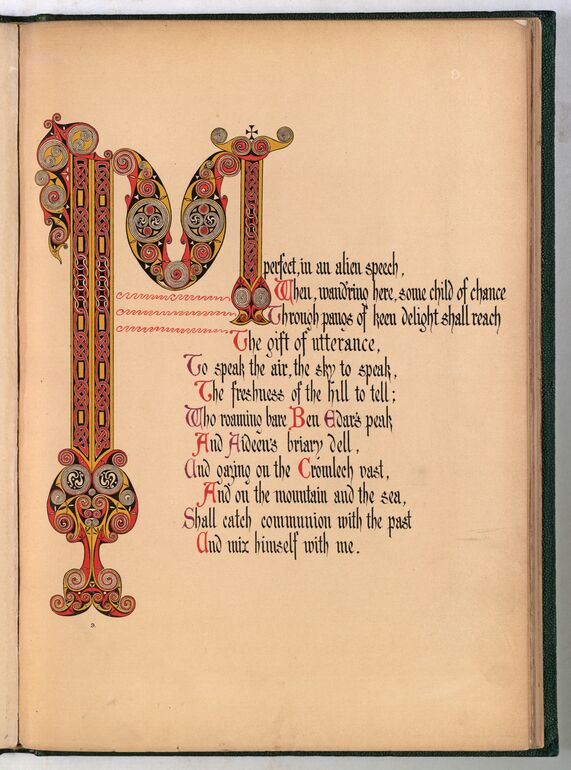 IMperfect, in an alien speech,
When, wand'ring here, some child of chance
Through pangs of keen delight shall reach
The gift of utterance,
To speak the air, the sky to speak,
The freshness of the hill to tell;
Who roaming bare Ben Edar's peak
And Aideen's briary dell,
And gazing on the Cromlech vast,
And on the mountain and the sea,
Shall catch communion with the past
And mix himself with me.
9.